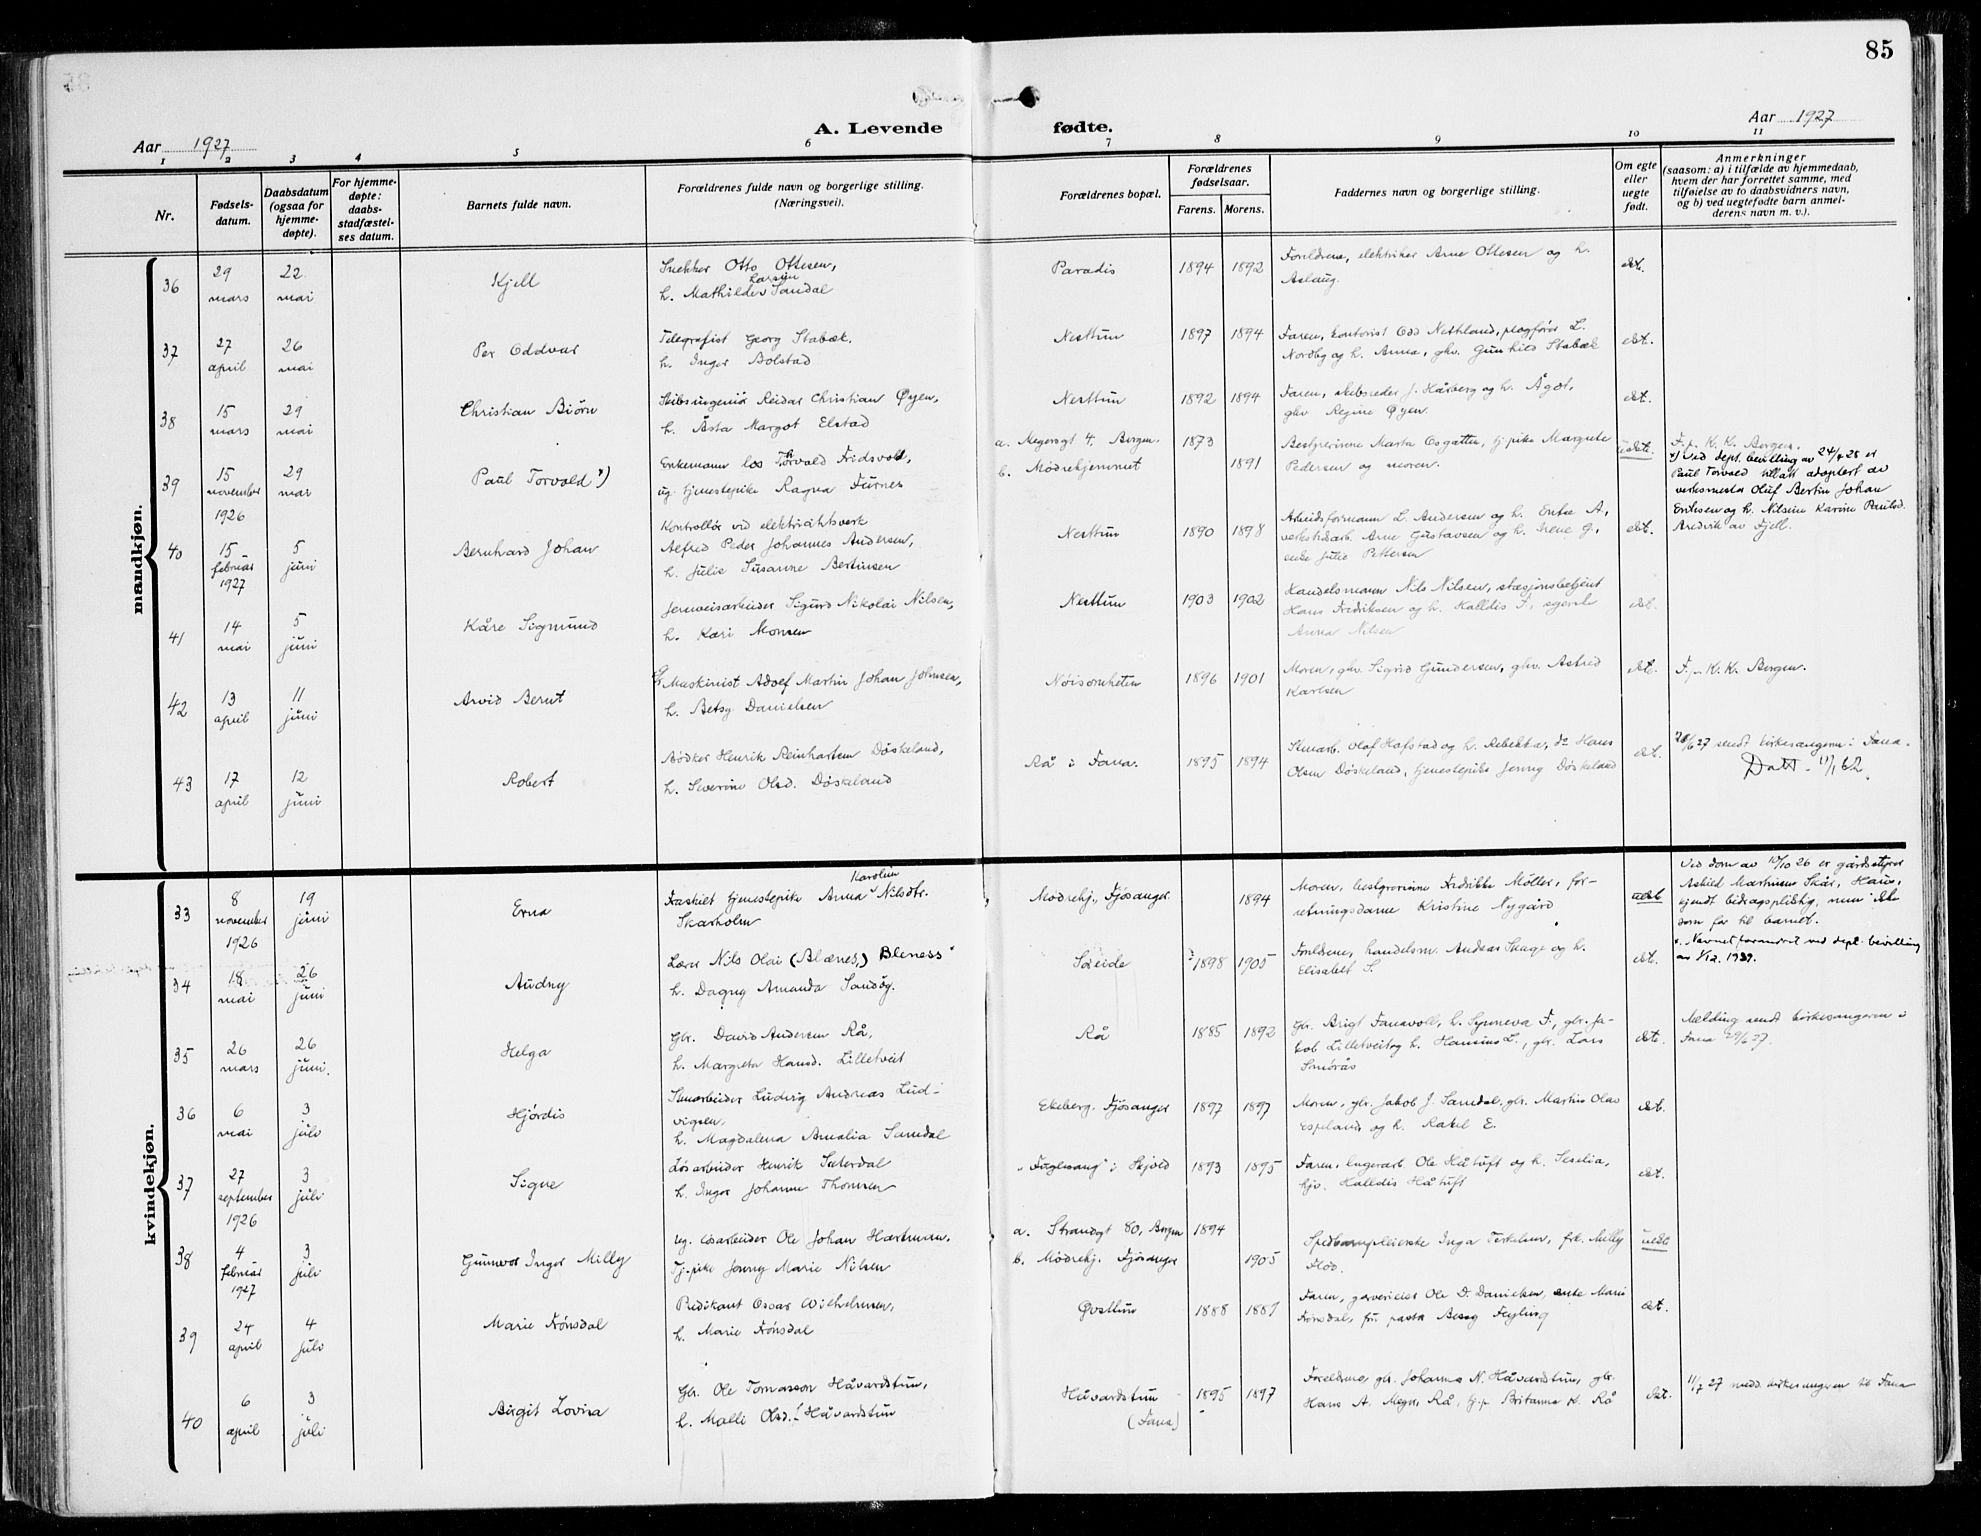 85
A. Levende fødte.
Aar 1927
Aar 1927
1 2 3 4 5 6 7 8 9 10 11
Nr.
Fødsels-
datum.
Daabsdatum
(ogsaa for
hjemme-
døpte).
For hjemme-
døpte:
daabs-
stadfæstel-
ses datum.
Barnets fulde navn.
Forældrenes fulde navn og borgerlige stilling.
(Næringsvei).
Forældrenes bopæl.
Forældrenes
fødselsaar.
Farens. Morens.
Faddernes navn og borgerlige stilling.
Om egte
eller
uegte
født.
Anmerkninger
(saasom: a) i tilfælde av hjemmedaab,
hvem der har forrettet samme, med
tilføielse av to daabsvidners navn,
og b) ved uegtefødte barn anmel-
derens navn m. v.).
mandkjøn.
36
29
mars
22
mai
Kjell
Snekker Otto Ottesen,
Larsen
h. Mathilde Sandal
Paradis
1894 1892
Foreldrene, elektriker Arne Ottesen og h.
Aslaug.
ekt.
37
27
april
26
mai
Per Oddvar
Telegrafist Georg Stabæk,
h. Inger Bolstad
Nesttun
1897 1894
Faren, kontorist Odd Nesthland, plogfører L.
Nordby og h. Anna, ghv. Gunhild Stabæk
ekt.
38
15
mars
29
mai
Christian Biørn
Skibsingeniør Reidar Christian Øyen,
h. Åsta Margot Elstad
Nesttun
1892 1894
Faren, skibsreder J. Hårberg og h. Ågot,
ghv. Regine Øyen.
ekt.
39
15
november
1926
29
mai
Paul Torvald *)
Enkemann løs Torvald Fridsvold,
ug. tjenestepike Ragna Furnes
a. Meyersgt 4, Bergen.
b. Mødrehjemmet
1873
1891
Bestyrerinne Marta Osgatten, tj. pike Margrete
Pedersen og moren.
uekte.
F. p. K. K. Bergen.
*) Ved dept. bevilling av 24/4 28 er
Paul Torvald tillatt adoptert av
verksmester Oluf Bertin Johan
Eriksen og h. Nilsine Karine Paulsd.
Aredvik av Fjell.
40
15
februar
1927
5
juni
Bernhard Johan
Kontrollør ved elektricitetsverk
Alfred Peder Johannes Andersen,
h. Julie Susanne Berntsen
Nesttun
1890 1898
Arbeidsformann L. Andersen og h. Entse A,
verkstedarb. Arne Gustavsen og h. Irene G.,
enke Julie Pettersen
ekt.
41
14
mai
5
juni
Kåre Sigmund
Jernveisarbeider Sigurd Nikolai Nilsen,
h. Kari Monsen
Nesttun
1903 1902
Handelsmann Nils Nilsen, stasjonsbetjent
Hans Fredriksen og h. Halldis F.,
Anna Nilsen
ekt.
42
13
april
11
juni
Arvid Bernt
Maskinist Adolf Martin Johan Johnsen,
h. Betsy Danielsen
Nøisomheten
1896 1901
Moren, ghv. Sigrid Gundersen, ghv. Astrid
Karlsen
ekt.
F. p. K. K. Bergen.
43
17
april
12
juni
Robert
Bødker Henrik Reinhartsen Døskeland,
h. Severine Olsd. Døskeland
Rå i Fana.
1895 1894
Stenarb. Olof Hafstad og h. Rebekka, do Hans
Olsen Døskeland, tjenestepike Jenny Døskeland
ekt.
20/6 27 sendt kirkesangeren i Fana.
Datt. 11/1 62.
kvindekjøn.
33
8
november
1926
19
juni
Erna
Karoline
Fraskilt tjenestepike Anna Nilsdtr.
Skarholm
Mødrehj., Fjøsanger
1894
Moren, bestyrerinne Fredrikke Møller, for-
retningsdame Kristine Nygård
uekt
Ved dom av 10/10 26 er gårdsstyrer
Askild Martinsen Skår, Haus,
kjendt bidragspliktig, men ikke
som far til barnet.
34
18
mai
26
juni
Audny
Lærer Nils Olai (Blænes,) Bleness*
h. Dagny Amanda Sandøy.
Søreide
1898 1905
Foreldrene, handelsm. Andreas Skage og h.
Elisabet S.
ekt.
*. Navnet forandret ved dept. bevilling
av 1/12. 1939.
35
26
mars
26
juni.
Helga
Gbr. David Andersen Rå,
h. Margreta Hansd. Lilletveit
Rå
1885 1892
Gbr. Brigt Fanavoll, h. Synneva F., gbr. Ja-
kob Lilletveit og h. Hansine L., gbr. Lars
Smørås
ekte.
Melding sendt kirkesangeren i
Fana 29/6 27.
36
6
mai
3
juli
Hjördis
Stenarbeider Ludvig Andreas Lud-
vigsen,
h. Magdalena Amalia Sandal
Ekeberg, Fjøsanger
1897 1897
Moren, gbr. Jakob J. Sandal, gbr. Martin Olas
Espeland og h. Rakel E.
ekt.
37
27
september
1926
3
juli
Signe
Løsarbeider Henrik Seterdal
h. Inger Johanne Thomsen
"Fuglesang" i Skjold
1893 1895
Faren, lagerarb. Ole Håtuft og h. Seselia,
hjv. Halldis Håtuft
ekt.
38
4
februar
1927
3
juli
Gunnvor Inger Milly
ug. løsarbeider Ole Johan Hartmann,
Tj.pike Jenny Marie Nilsen
a. Strandgt 80, Bergen
b. Mødrehj. Fjøsanger
1894
1905
Spedbarnpleierske Inga Terkelsen, frk. Milly
Flod.
uekt
39
24
april
4
juli
Marie Frönsdal
Predikant Oscar Wilhelmsen,
h. Marie Frönsdal
Øvsttun
1888 1887
Faren, garverieier Ole D. Danielsen, enke Marie
Frönsdal, fru pastor Bessy Fejling
ekt.
40
6
april
3
juli
Birgit Lovisa
Gbr. Ole Tomasson Håvardstun,
h. Malli Olsd. Håvardstun
Håvardstun
(Fana)
1895 1897
Foreldrene, gbr. Johannes N. Håvardstun, gbr.
Hans A. Meyer, Rå, tj.p Britanna K. Rå
ekt.
11/7 27 medd. kirkesangeren til Fana